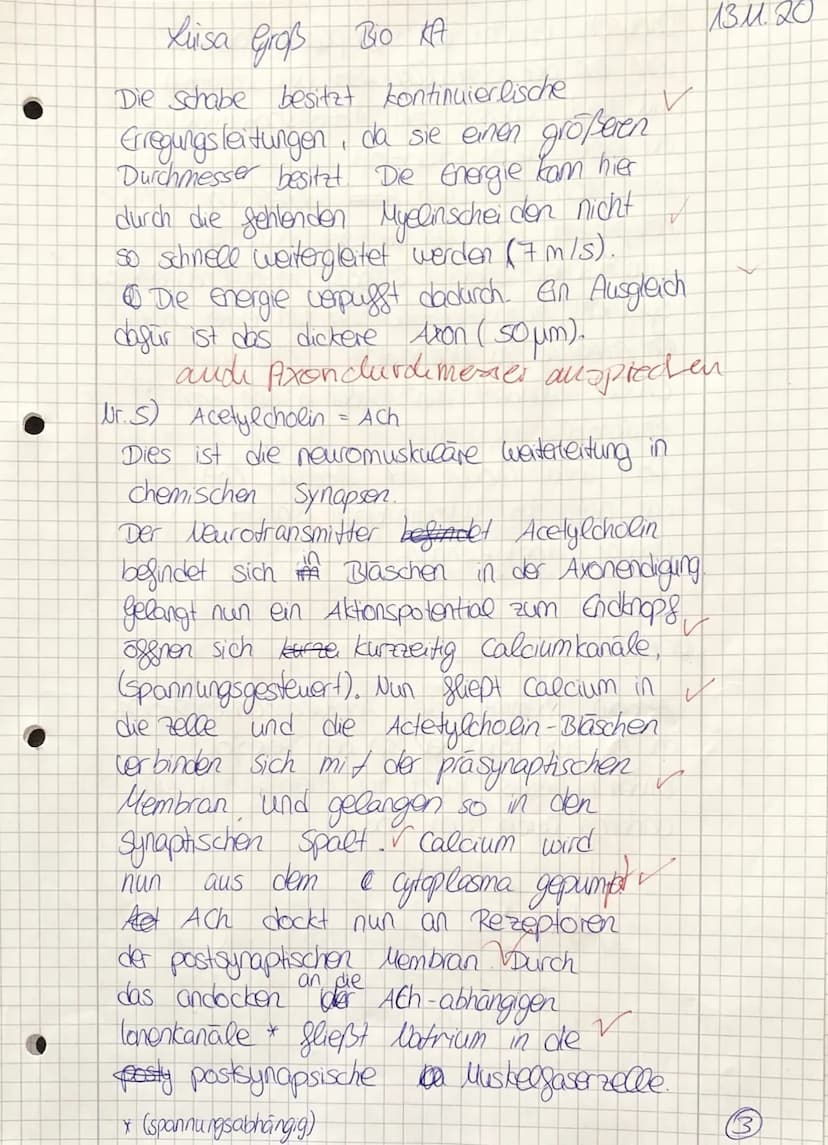 13.11.20
Luisa Groß Bio KA
Die Schabe besitzt kontinuierlische
Erregungsleitungen, da sie einen größeren
Durchmesser besitzt Die Energie kann hier
durch die fehlenden Myelinscheiden nicht
so schnell weitergleitet werden (7 m/s).
Die Energie verpufft dadurch. Ein Ausgleich
dafür ist das dickere Axon (50 µm).
auch Axondurchmesser ansprechen
Nr. 5) Acetylcholin = ACh
Dies ist die neuromuskuläre Weiterleitung in
chemischen Synapsen.
Der Neurotransmitter befindet Acetylcholin
befindet sich in Bläschen in der Axonendigung
Gelangt nun ein Aktionspotential zum Endknopf,
öffnen sich kurze kurzzeitig Calciumkanäle,
(spannungsgesteuert). Nun fließt Calcium in
die Zelle und die Actetylcholin-Bläschen
verbinden sich mit der präsynaptischen
Membran und gelangen so in den
synaptischen Spalt. Calcium wird
nun aus dem Cytoplasma gepumpt
ACh dockt nun an Rezeptoren
der postsynaptischen Membran. Durch
das andocken an die ACh-abhängigen
Ionenkanäle * fließt Natrium in die
posty postsynapsische Muskelfaserzelle.
* (spannungsabhängig)
3